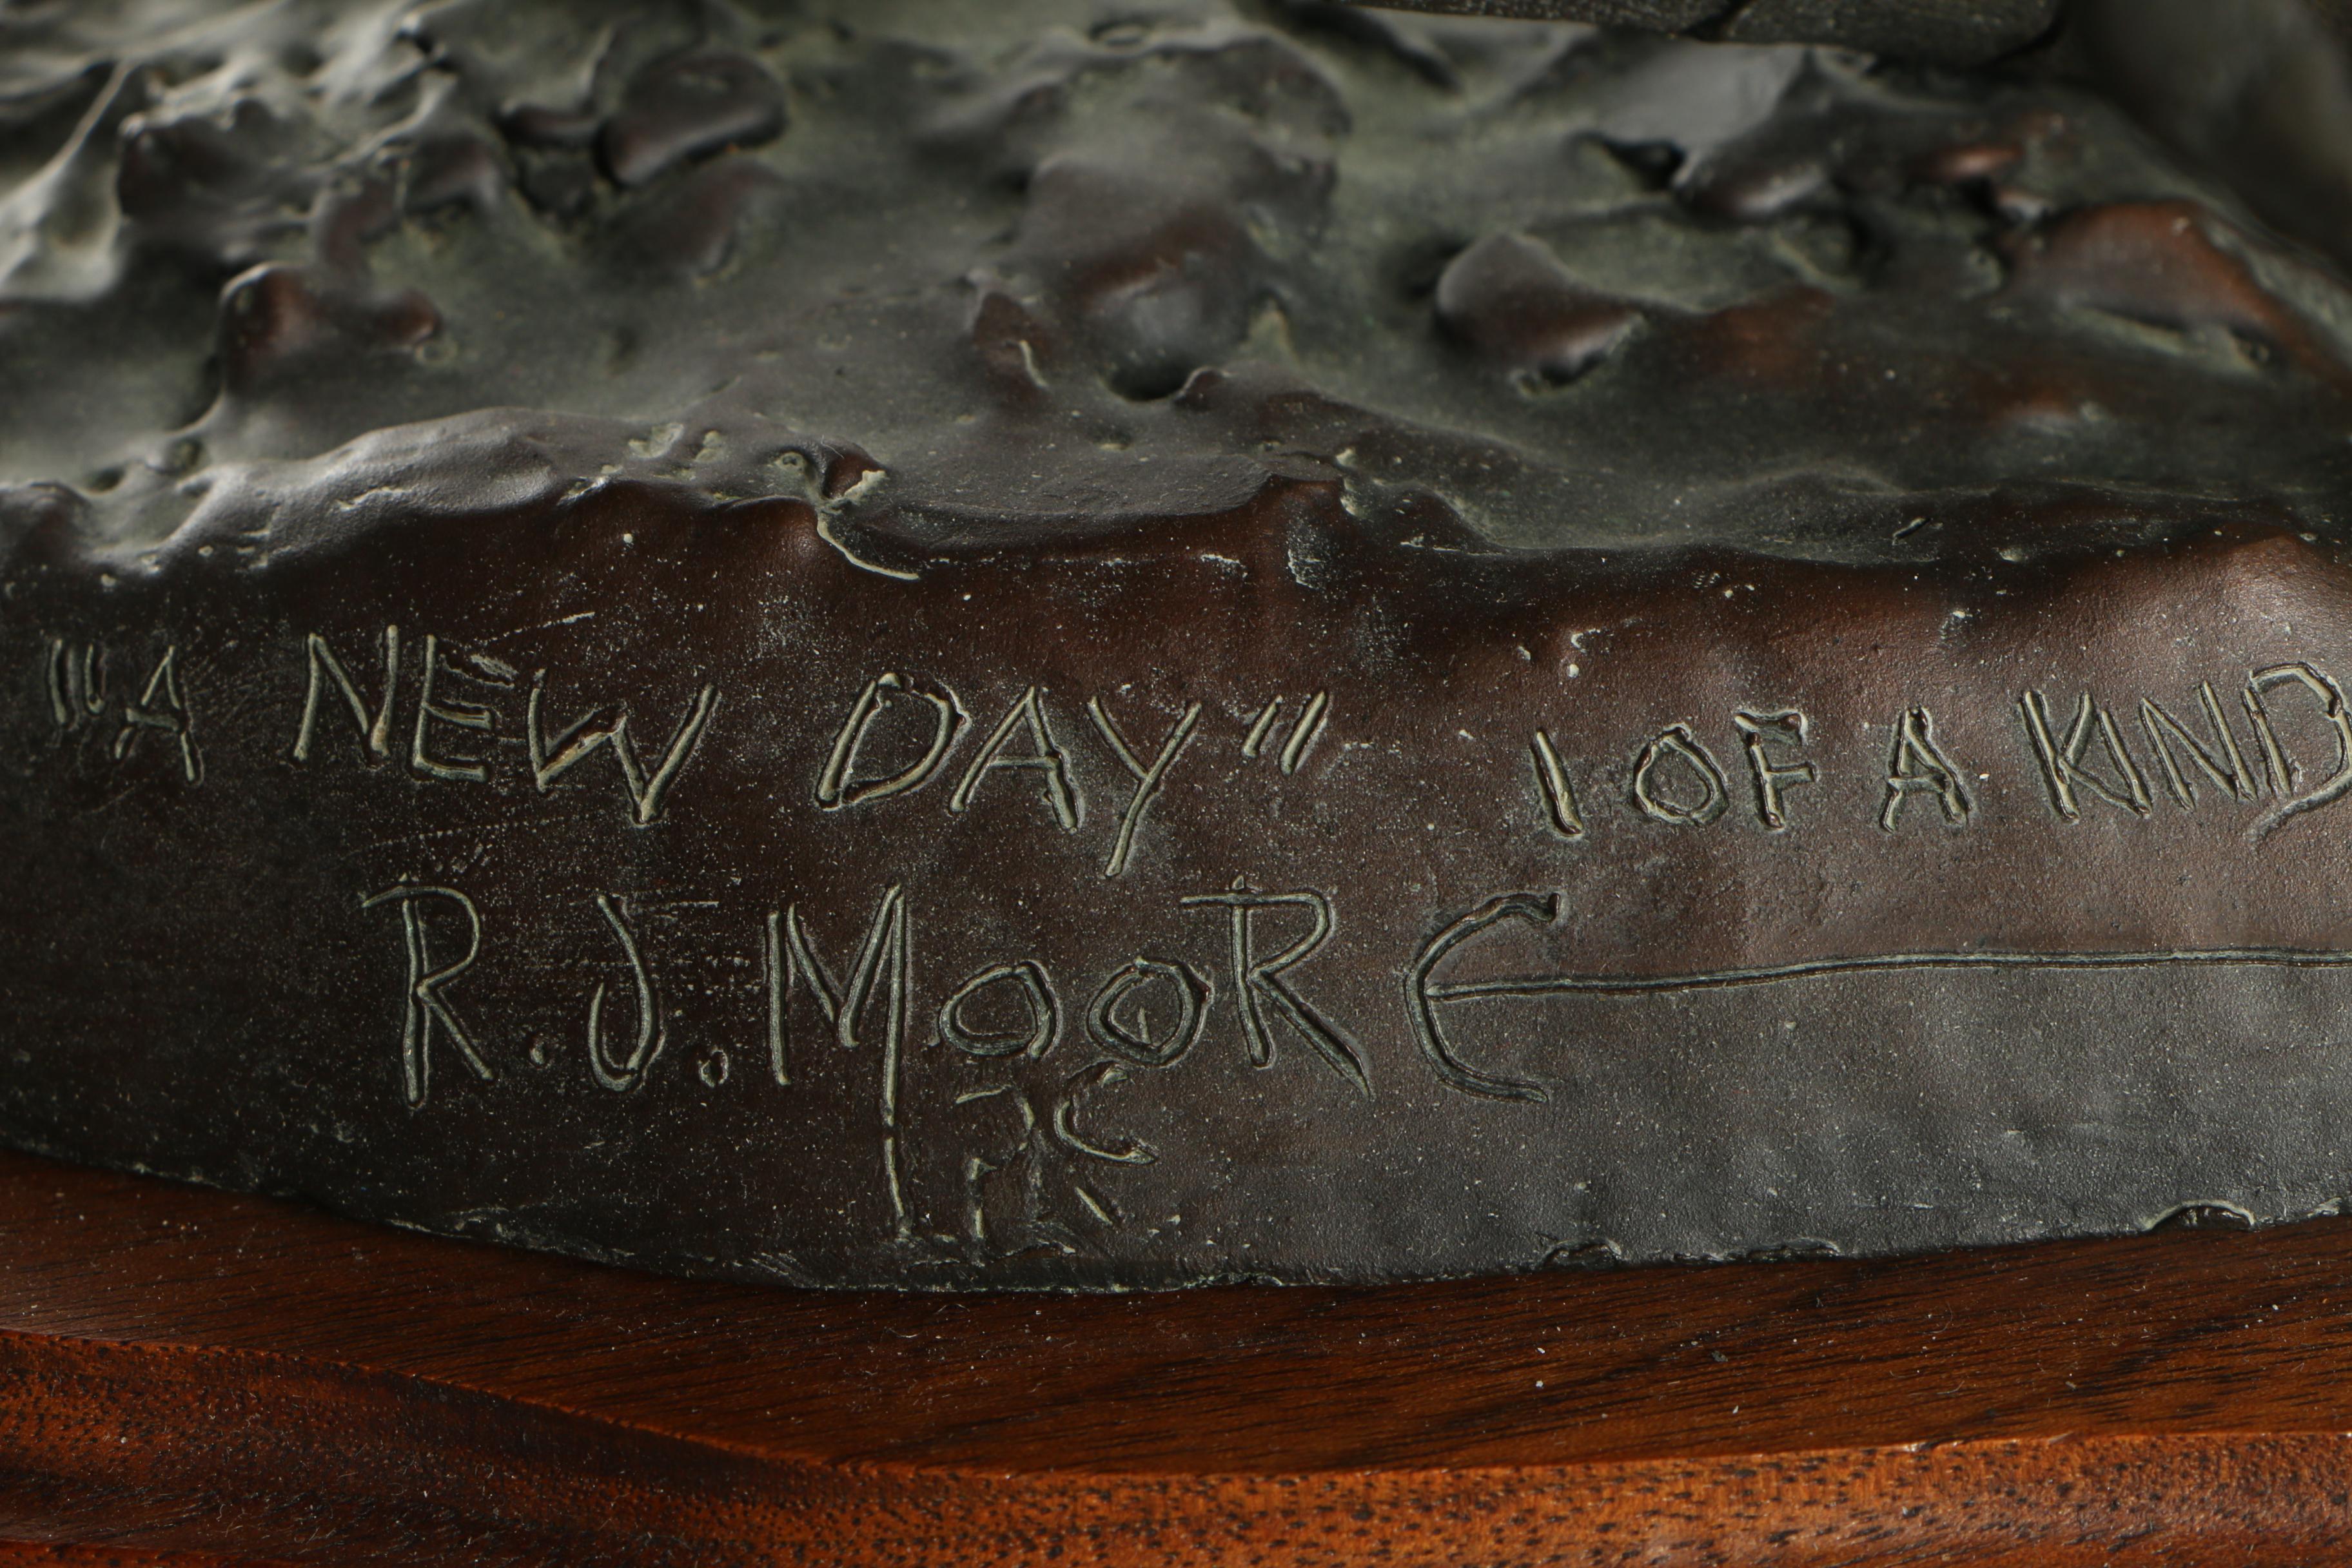 "A NEW DAY" 1 OF A KIND
R.J. MOORE